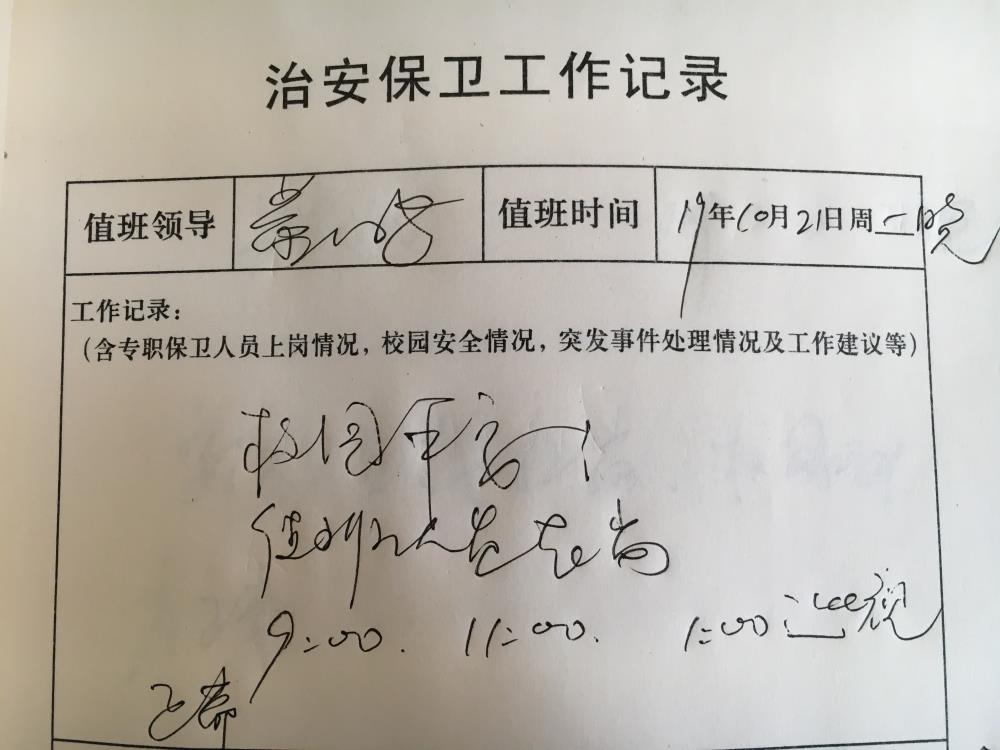 治安保卫工作记录
值班领导 值班时间 19年10月21日周一晚
工作记录：
（含专职保卫人员上岗情况，校园安全情况，突发事件处理情况及工作建议等）
校园平安！
值班人员在岗
9:00. 11:00. 1:00巡视
正常